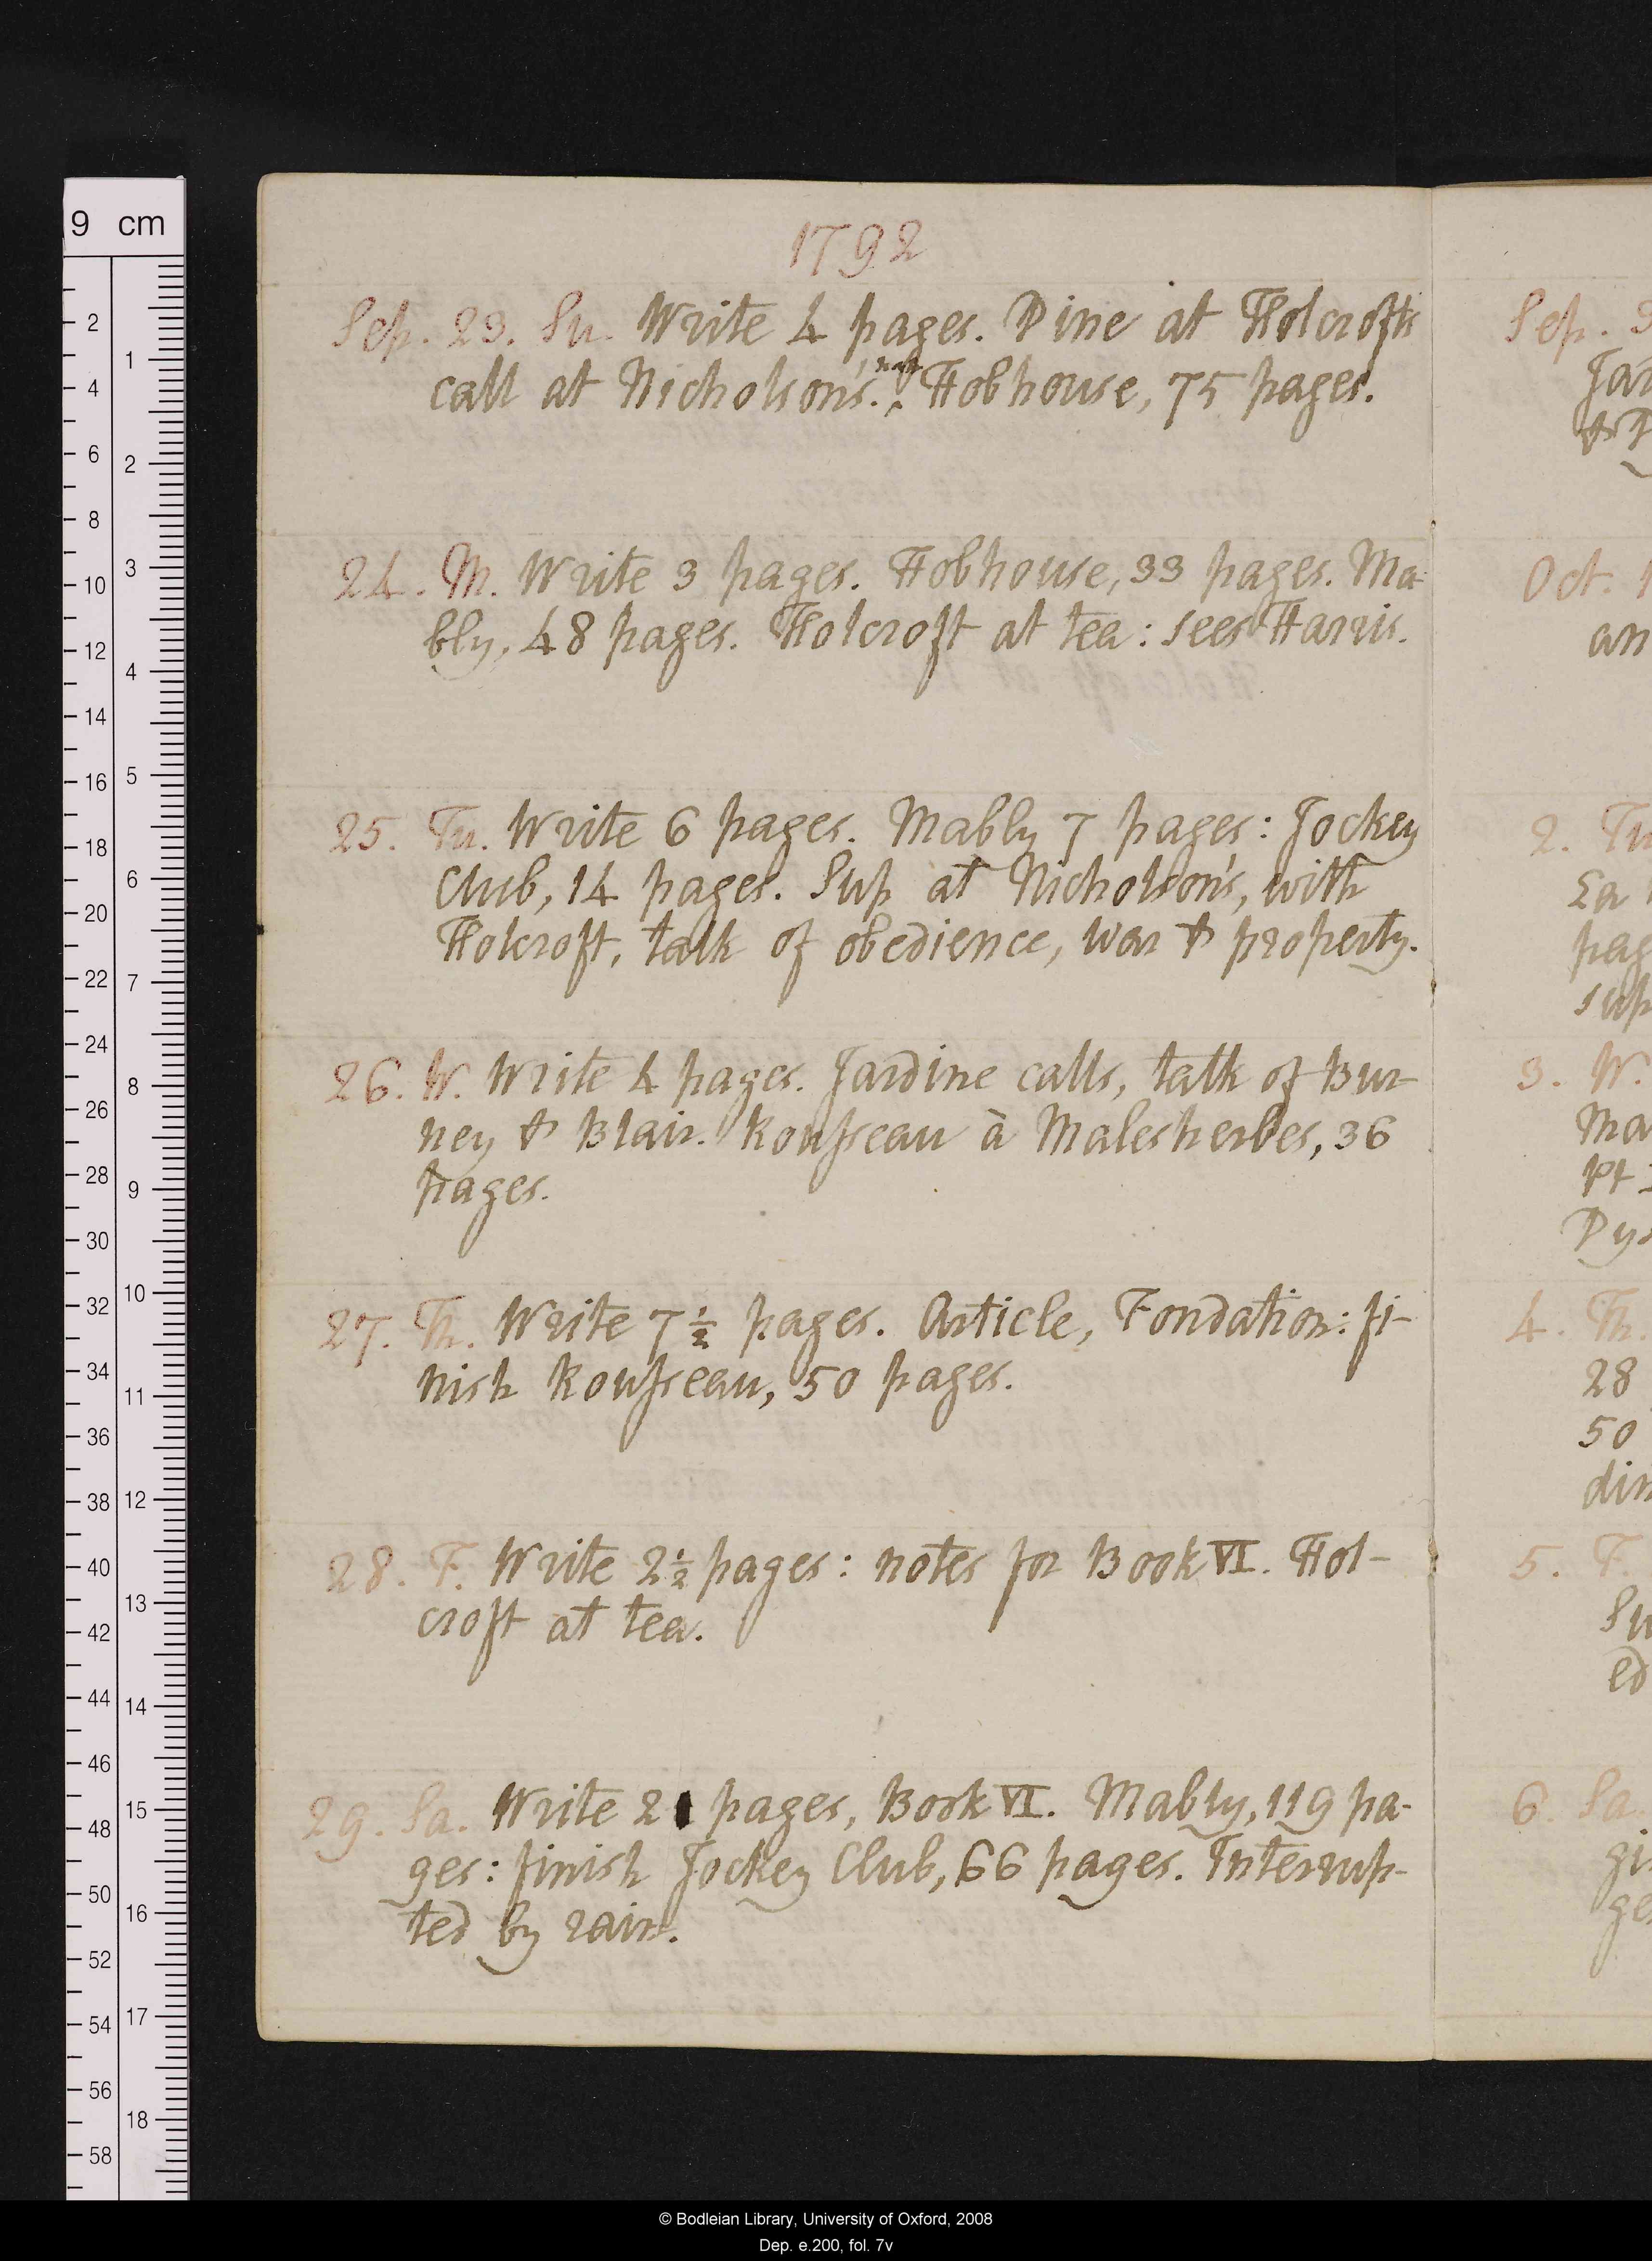 1792
Sep. 23. Su. Write 4 pages. Dine at Holcrofts
call at Nicholson's. Hobhouse, 75 pages.
24. M. Write 3 pages. Hobhouse, 33 pages. Ma-
bly, 48 pages. Holcroft at tea: sees Harris.
25. Tu. Write 6 pages. Mably 7 pages: Jockey
Club, 14 pages. Sup at Nicholson's, with
Holcroft, talk of obedience, war & property.
26. W. Write 4 pages. Jardine calls, talk of Bur-
ney & Blair. Rousseau à Malesherbes, 36
pages.
27. Th. Write 7½ pages. Article, Fondation: fi-
nish Rousseau, 50 pages.
28. F. Write 2½ pages: notes for Book VI. Hol-
croft at tea.
29. Sa. Write 2 pages, Book VI. Mably, 119 pa-
ges: finish Jockey Club, 66 pages. Interrup-
ted by rain.
Sep. 3
Jar
& D
Oct. 1
an
2. Tu
pag
sup
3. W.
Ma
Pt
Dys
4. Th.
28
50
din
5. F.
Su
ed
6. Sa.
gi
ge
9 cm
2
4
6
8
10
12
14
16
18
20
22
24
26
28
30
32
34
36
38
40
42
44
46
48
50
52
54
56
58
1
2
3
4
5
6
7
8
9
10
11
12
13
14
15
16
17
18
© Bodleian Library, University of Oxford, 2008
Dep. e.200, fol. 7v